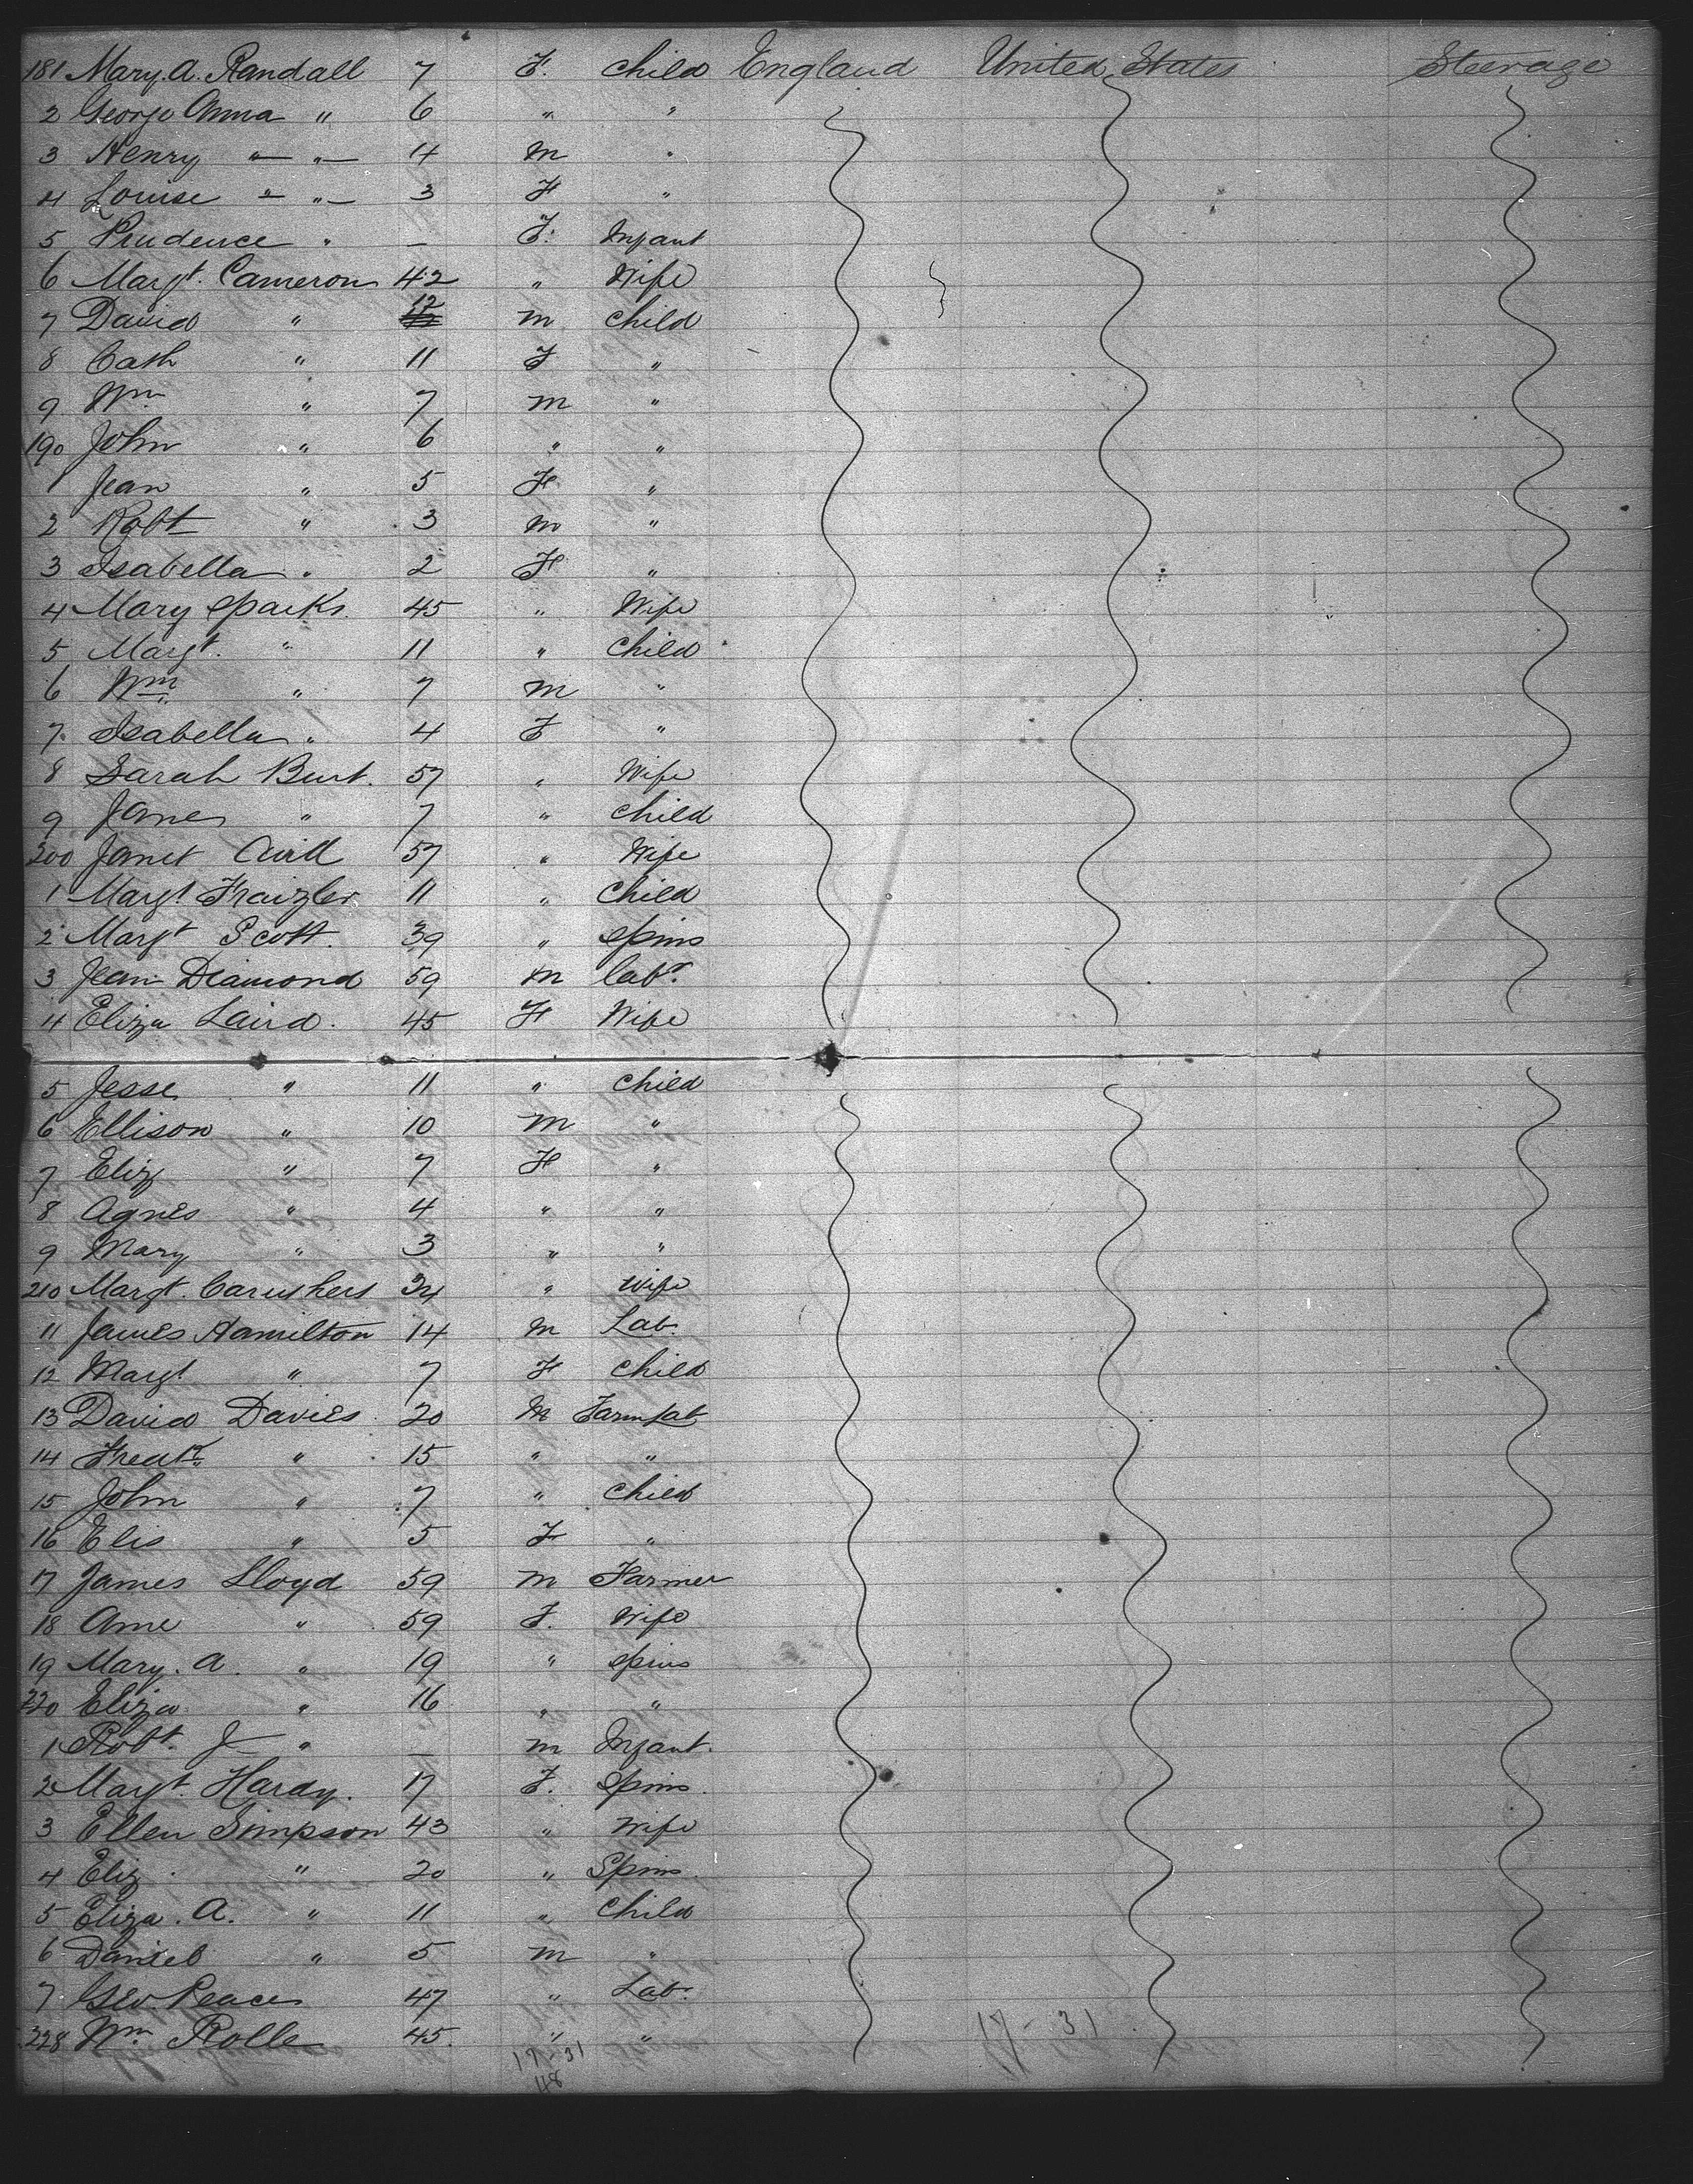 181 Mary. A. Randall 7 F. Child England United States Steerage
2 George Anna " 6 " "
3 Henry " " 4 M "
4 Louise " " 3 F "
5 Prudence " — F. Infant
6 Margt. Cameron 42 " Wife
7 David " 12 M Child
8 Cath " 11 F "
9 Wm " 7 M "
190 John " 6 " "
1 Jean " 5 F "
2 Robt " 3 M "
3 Isabella " 2 F "
4 Mary Sparks. 45 " Wife
5 Margt. " 11 " Child
6 Wm " 7 M "
7 Isabella " 4 F "
8 Sarah Burt. 57 " Wife
9 James " 7 " Child
200 Janet 57 " Wife
1 Margt Fraizler 11 " Child
2 Margt Scott. 39 " Spins
3 Jean Diamond 59 M Labr.
4 Eliza Laird. 45 F Wife
5 Jesse " 11 " Child
6 Ellison " 10 M "
7 Eliz " 7 F "
8 Agnes " 4 " "
9 Mary " 3 " "
210 Margt. Caruthers 24 " Wife
11 James Hamilton 14 M Lab.
12 Margt " 7 F Child
13 David Davies. 20 M Farm Lab
14 Fredk. " 15 " "
15 John " 7 " Child
16 Elis " 5 F "
17 James Lloyd 59 M Farmer
18 Anne " 59 F. Wife
19 Mary. A. " 19 " Spins
220 Eliza " 16 " "
1 Robt. J " — M Infant.
2 Margt. Hardy. 17 F. Spins.
3 Ellen Simpson 43 " Wife
4 Eliz. " 20 " Spins.
5 Eliza. A. " 11 " Child
6 Daniel " 5 M "
7 Geo. Peace 47 " Lab.
228 Wm. Rolle 45. " "
17-31 17-31
48